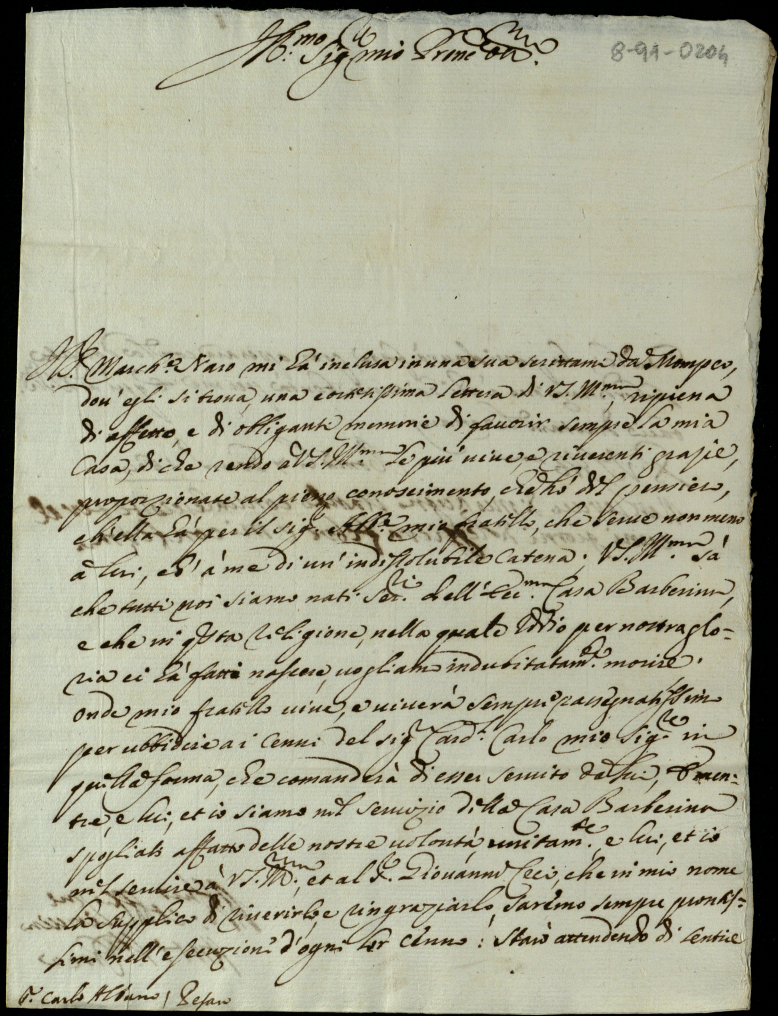 Ill.mo Sig.re mio Pron Oss.mo
8-91-0204
Il S.r March.e Naro mi hà inclusa in una sua scrittami da Mompeo,
dov'egli si trova, una cortesissima lettera di V.S. Ill.ma ripiena
di affetto, e di obligante memorie di favorir sempre la mia
Casa, di che rendo à V.S. Ill.ma le più vive e riverenti grazie,
proporzionate al pieno conoscimento, che hò del pensiero,
ch'ella hà per il sig.r mio fratello, che serve non meno
à lui, ed à me di un' indissolubile catena. V.S. Ill.ma sà
che tutti noi siamo nati Ser.ri dell'Ecc.ma Casa Barberina,
e che in q.sta religione, nella quale Iddio per nostra glo=
ria ci hà fatti nascere, vogliam indubitatam.te morire.
onde mio fratello vive, e viverà sempre rassegnatissimo
per ubbidire a i cenni del sig.r Card.l Carlo mio Sig.re in
quella forma, che comanderà di esser servito da lui, e men=
tre, e lui, et io siamo nel servizio della Casa Barberina
spogliati affatto delle nostre volontà unitam.te e lui, et io
nel servire à V.S. Ill.ma, et al S.r Giovanni Ceci, che in mio nome
la supplico di riverirlo, e ringraziarlo, saremo sempre prontis=
simi nell'esecuzioni d'ogni lor cenno: Starò attendendo di sentire
S.r Carlo Albano / Pesaro